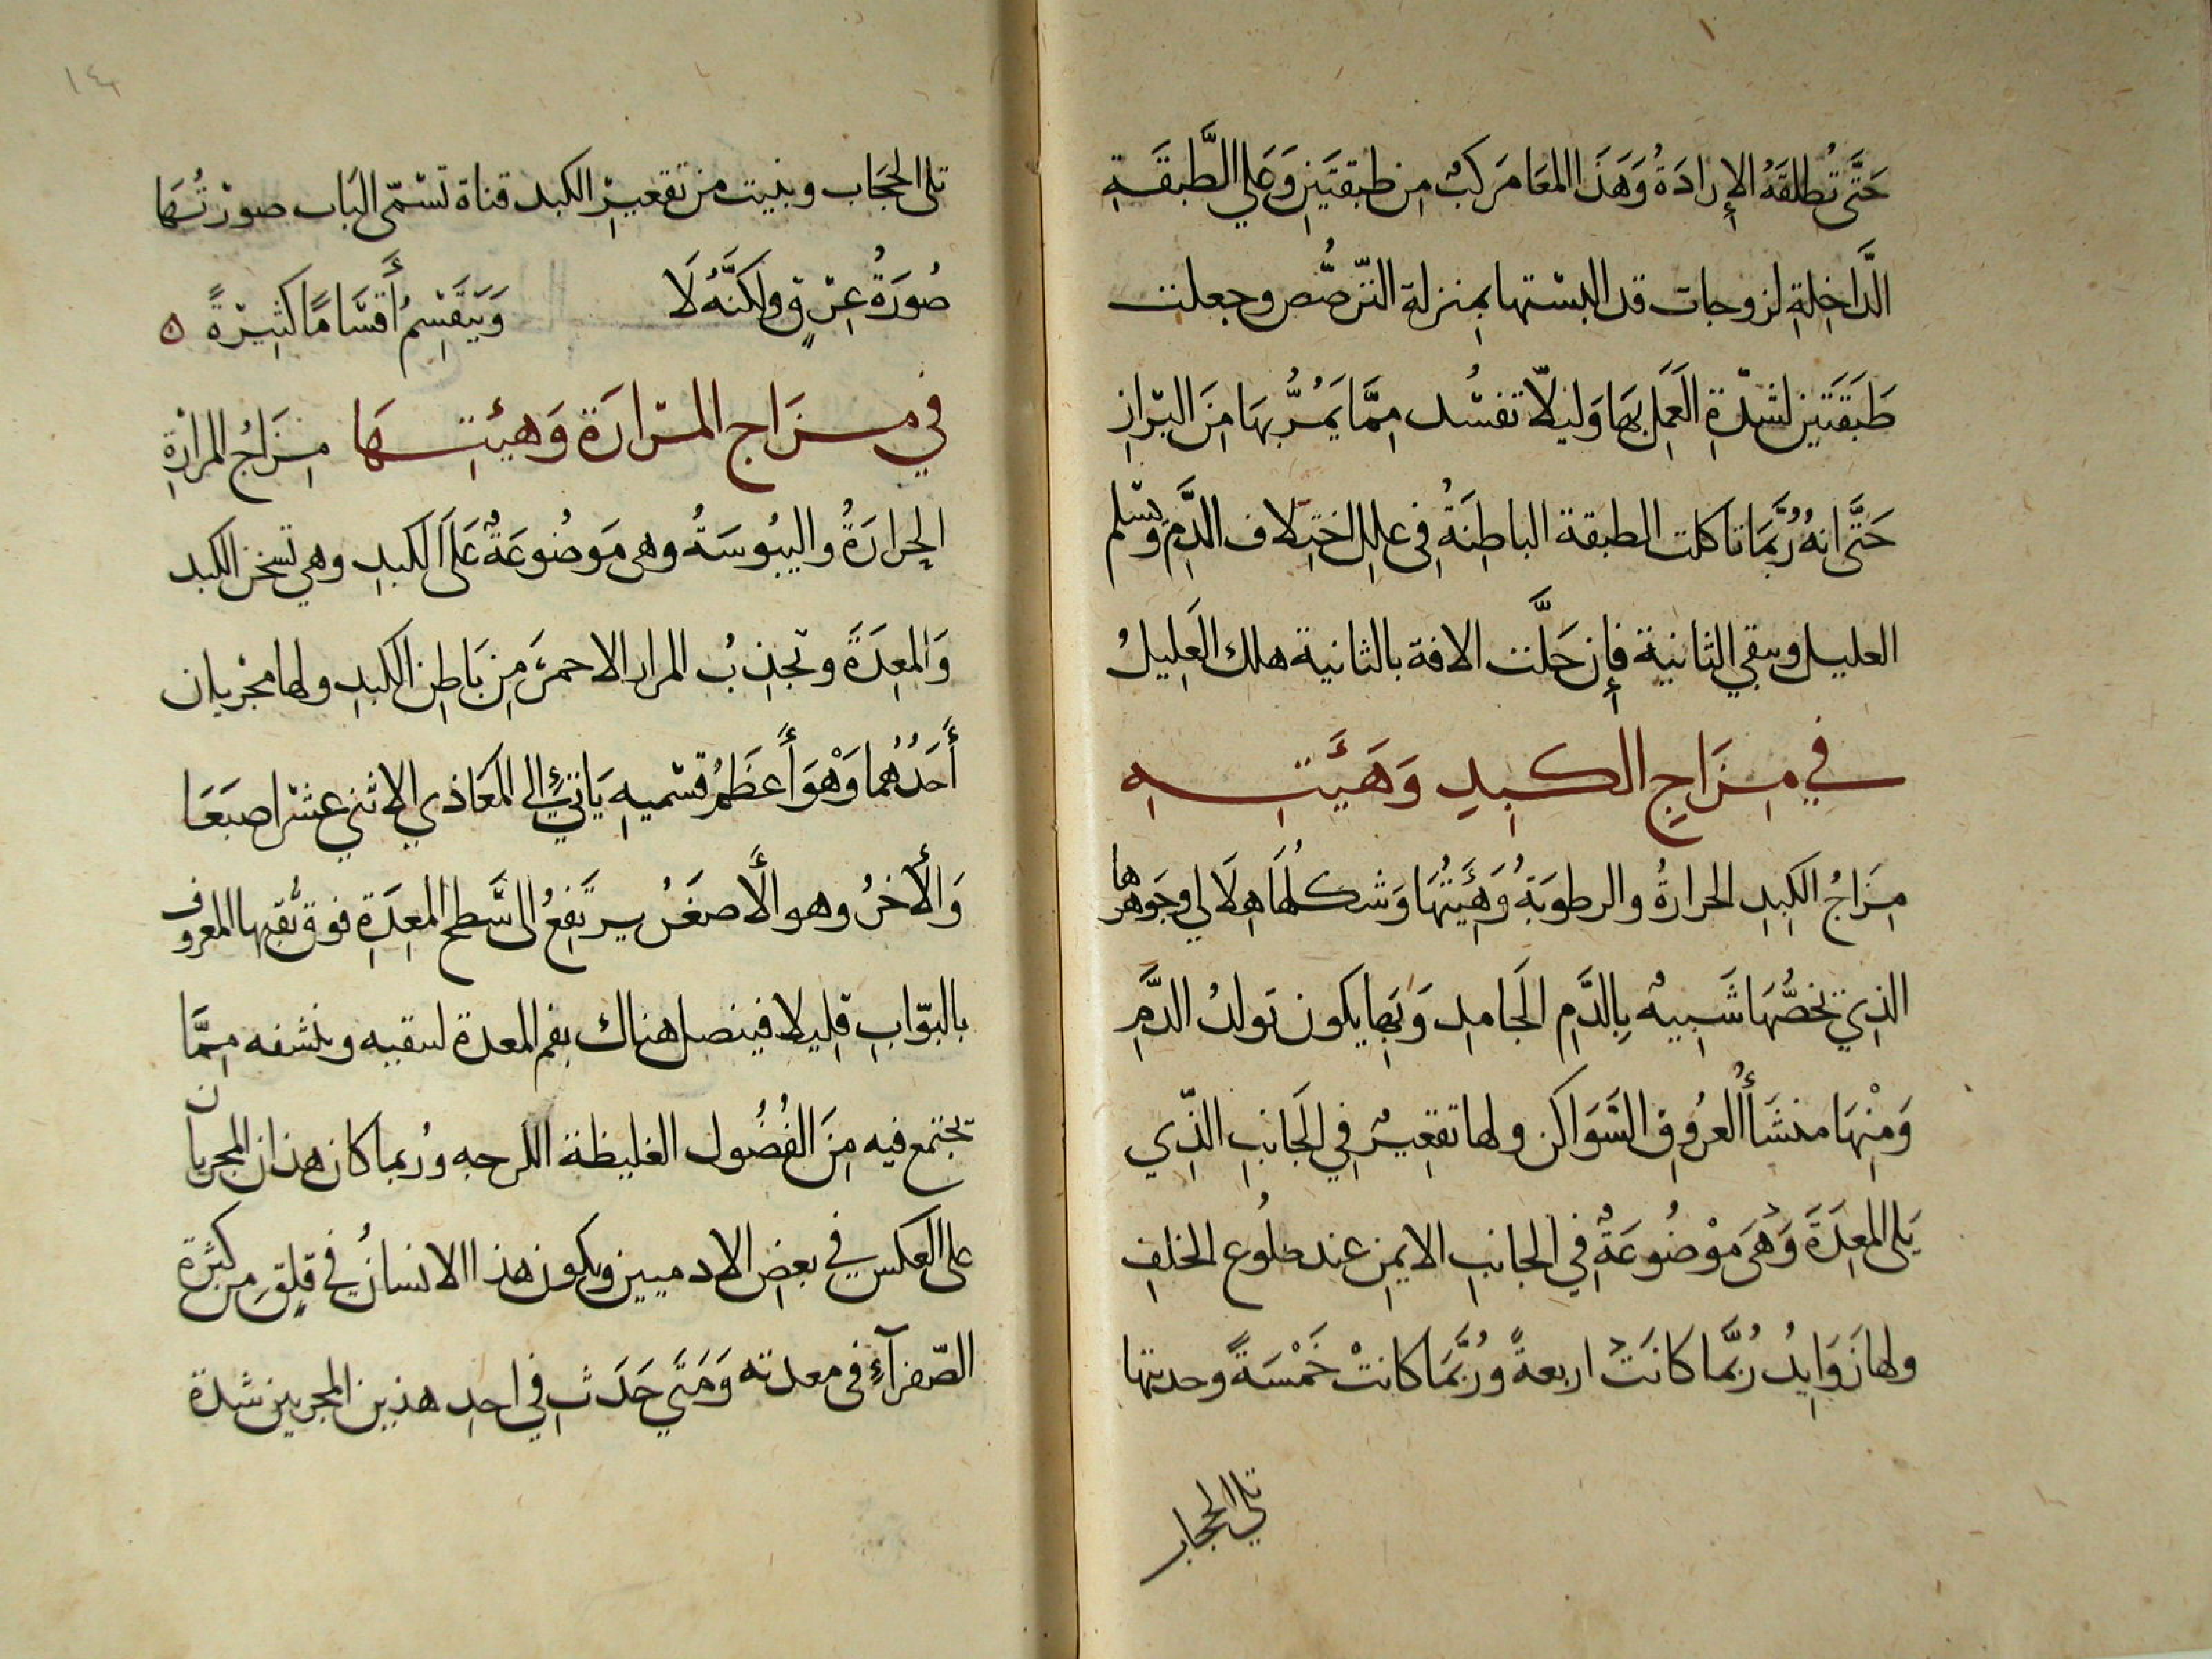 حَتَّى تُطلقَهُ الإِرادَةُ وَهَذَا المعَا مَركبٌ مِن طبقتَينِ وَعَلي الطَّبقَةِ
الدَّاخِلةِ لزوجات قد البستها بمنزلة الترصُّص وجعلت
طَبَقَتَين لشدّةِ العَمَلِ بهَا وَليلّا تفسُد مِمَّا يَمُرُّ بهَا مِنَ البَرَازِ
حَتَّى انهُ رُبَّمَا تاكلت الطبقة الباطِنَةُ فِي عللِ اختِلاف الدَّمِ وَيسلم
العليل ويبقي الثانية فإِن حَلَّت الافة بالثانية هلك العَلِيلُ
في مِزَاجِ الكبِدِ وَهَيَّتِهِ
مِزَاجُ الكَبِدِ الحرارةُ والرطوبَةُ وَهَيَّتهَا وَشكلُهَا هِلَالي وجَوهرها
الذِي تخصُّهَا شَبِيهٌ بِالدَّمِ الجَامدِ وَبِهَا يكون تولدُ الدَّمِ
وَمِنْهَا منشَأُ العرُوقِ السَّوَاكن ولها تقعِيرٌ فِي الجَانبِ الذِّي
يَلى المعِدَةَ وَهىَ موْضُوعَةٌ فِي الجانبِ الايمنِ عند ضلُوع الخلفِ
ولها زَوَايدُ رُبَّما كانَتْ اربعةً ورُبَّمَا كانتْ خَمْسَةً وحدبتها
تلي الحجاب
١٤
تلى الحجَاب وبنيت من تقعيرِ الكبد قناة تسْمّى البَاب صورْتُهَا
صُورَةُ عِرْقٍ ولَكنَّهُ لَا
وَيَتَقَسِمُ أَقسَّامًا كثِيرْةً ٥
في مِزَاج المرَارَة وَهيئتِهَا مِزَاجُ المرارَةِ
الحِرارَةُ واليبُوسَةُ وهى مَوضُوعَةٌ عَلَى الكبدِ وهي تسخن الكبد
وَالمعِدَةَ وتجذِبُ المرار الاحمرَ مِن بَاطِنِ الكبدِ ولها مجريان
أَحَدُهُما وَهْوَ أَعظَمُ قسْميهِ يَاتيٍ إِلي المعَا ذي الاثني عشر اصبَعَا
وَالأَخرُ وهو الأَصغَرُ يرتَفِعُ الى سَّطحِ المعِدَةِ فوق ثقبها المعروف
بالبوّابِ قِليلا فينصل هناك بفم المعدة لسقيه وينشفه مِمَّا
تجتمع فيه مِنَ الفُضُول الغليظة اللزجه ورُبما كان هذان المجريان
على العكس في بعضِ الادميين ويكون هذا الانسانُ في قلِقٍ مِن كثرَة
الصّفرآءِ فى معدته وَمَتَي حَدَث في احدِ هذين المجريين شدة